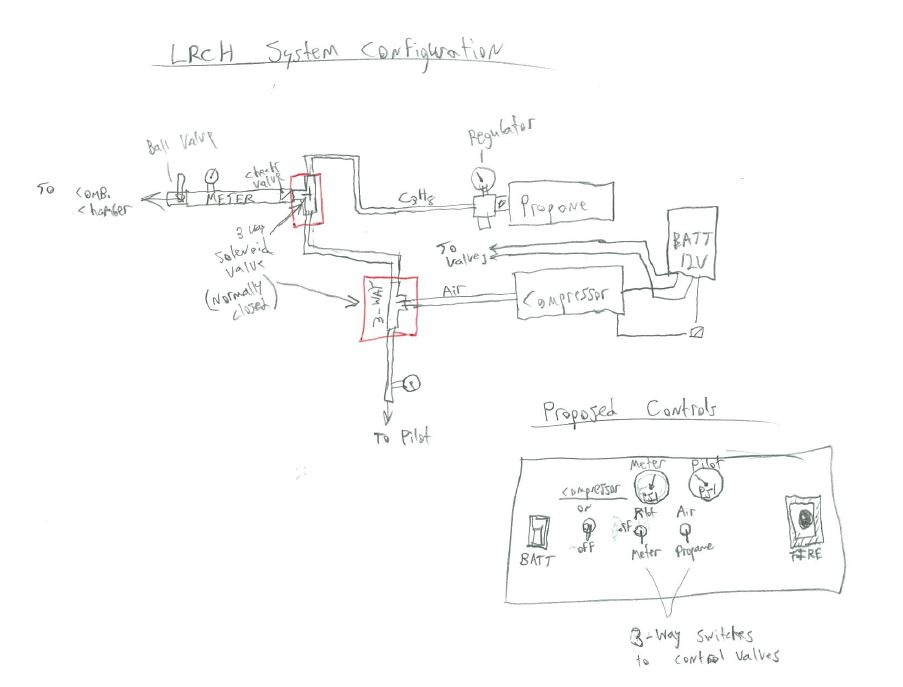 LRCH System Configuration
Ball Valve
Regulator
To
Comb.
Chamber
check
valve
METER
C3H8
P
Propane
3 way
Solenoid
valve
(Normally
closed)
To
Valves
BATT
12V
3-WAY
Air
Compressor
P
To Pilot
Proposed Controls
Meter
Pilot
PSI
PSI
Compressor
on
off
Pilot
off
Meter
Air
Propane
BATT
FIRE
3-Way switches
to control valves